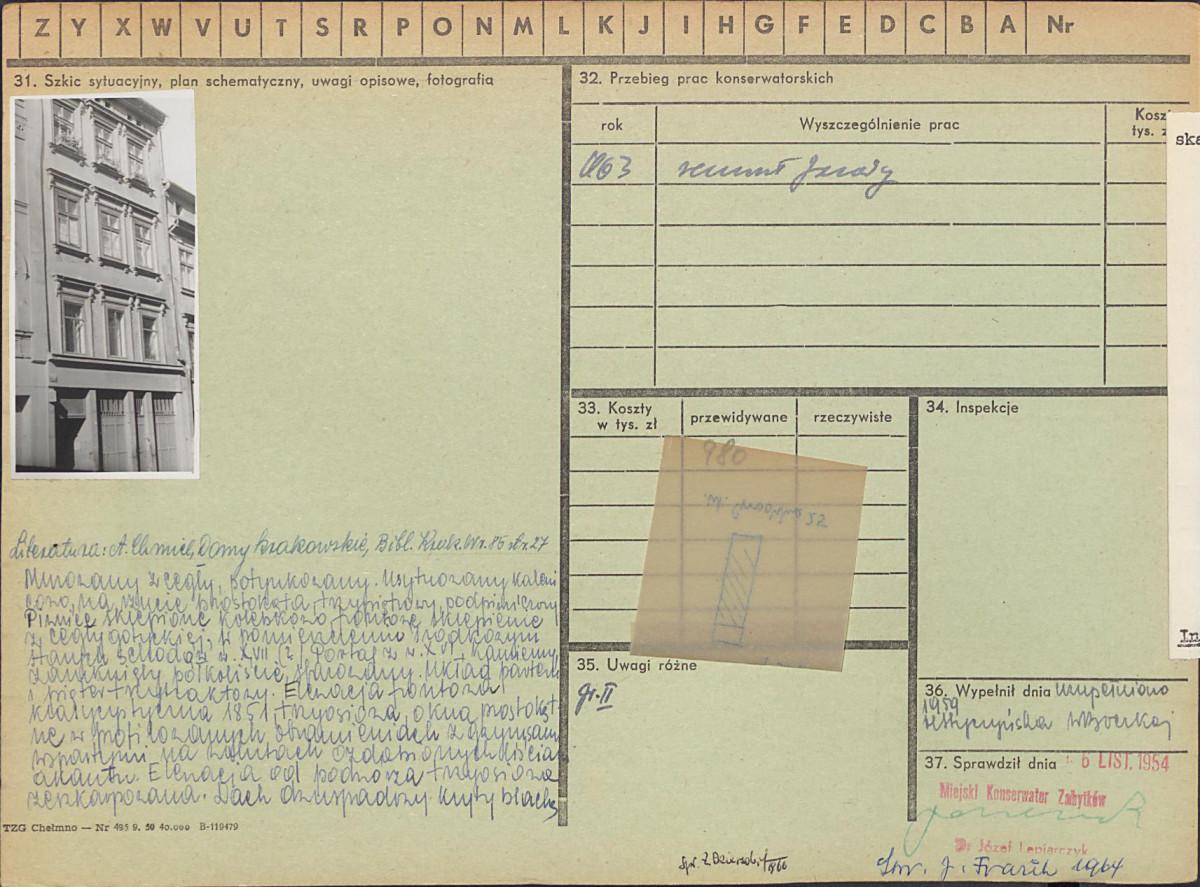 Z Y X W V U T S R P O N M L K J I H G F E D C B A Nr
31. Szkic sytuacyjny, plan schematyczny, uwagi opisowe, fotografia
Literatura: A. Chmiel, Domy krakowskie, Bibl. Krak. Nr. 86 str. 27
Murowany z cegły, potynkowany. Usytuowany kaleni
cowo, na rzucie prostokąta, trzypiętrowy, podpiwniczony
Piwnice sklepione kolebkowo, frontowe sklepienie
z cegły gotyckiej, w pomieszczeniu środkowym
schodów w. XVII (?) Portal z w. XVI, kamienny,
zamknięty półkoliście, sfazowany. Układ parteru
i pięter trzytraktowy. Elewacja frontowa
klasycystyczna 1851, trzyosiowa, okna prostokąt
ne w profilowanych obramieniach z gzymsami
wspartymi na wolutach ozdobionych liściem
akantu. Elewacja od podwórza trzyosiowa
zeszkarpowana. Dach dwuspadowy kryty blachą
TZG Chełmno — Nr 495 9. 50 40.000 B-119479
32. Przebieg prac konserwatorskich
rok Wyszczególnienie prac Kosz
tys. z
1963 remont fasady
33. Koszty
w tys. zł przewidywane rzeczywiste
980
25
34. Inspekcje
35. Uwagi różne
gr. II
36. Wypełnił dnia uzupełniono
1959
37. Sprawdził dnia 6 LIST. 1954
Miejski Konserwator Zabytków
Dr Józef Lepiarczyk
Spr. J. Frazik 1964
ska
In